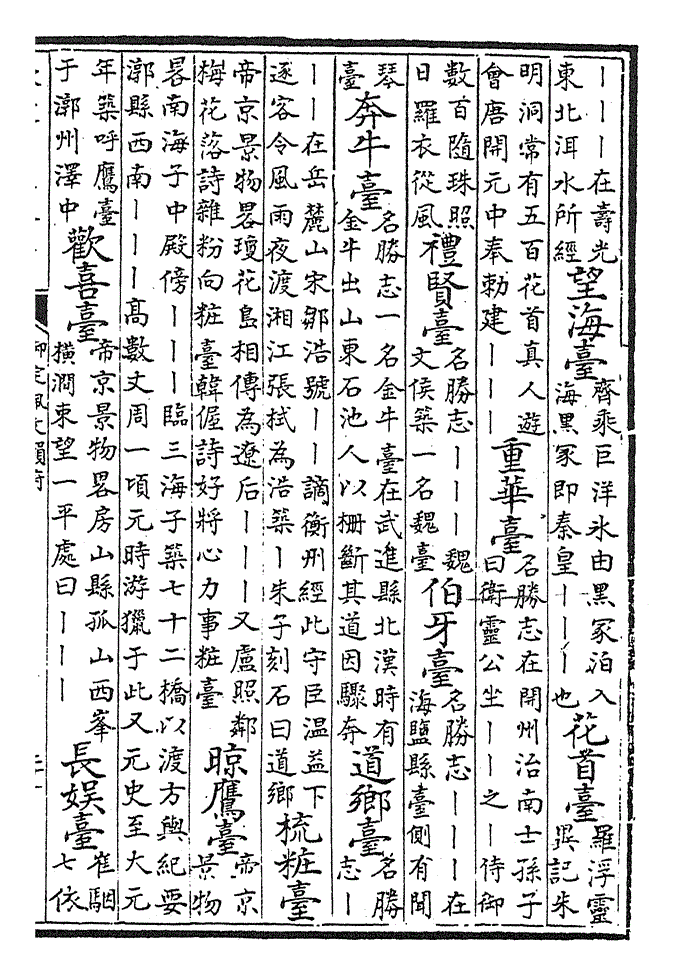 丨丨丨在壽光
東北洱水所經
望海臺
齊乘巨洋水由黑冢泊入
海黑冢即秦皇丨丨丨也
花首臺
羅浮靈
異記朱
明洞常有五百花首真人遊
會唐開元中奉勅建丨丨丨
重華臺
名勝志在開州治南士孫子
曰衛靈公坐丨丨之丨侍御
數百隨珠照
日羅衣從風
禮賢臺
名勝志丨丨丨魏
文侯築一名魏臺
伯牙臺
名勝志丨丨丨在
海鹽縣臺側有聞
琴
臺
奔牛臺
名勝志一名金牛臺在武進縣北漢時有
金牛出山東石池人以柵斷其道因驟奔
道鄉臺
名勝
志丨
丨丨在岳麓山宋鄒浩號丨丨謫衡州經此守臣温益下
逐客令風雨夜渡湘江張栻為浩築丨朱子刻石曰道鄉
梳粧臺
帝京景物畧瓊花島相傳為遼后丨丨丨又盧照鄰
梅花落詩雜粉向粧臺韓偓詩好將心力事粧臺
晾鷹臺
帝京
景物
畧南海子中殿傍丨丨丨臨三海子築七十二橋以渡方輿紀要
漷縣西南丨丨丨高數丈周一頃元時游獵于此又元史至大元
年築呼鷹臺
于漷州澤中
歡喜臺
帝京景物畧房山縣孤山西峯
橫澗東望一平處曰丨丨丨
長娛臺
崔駰
七依